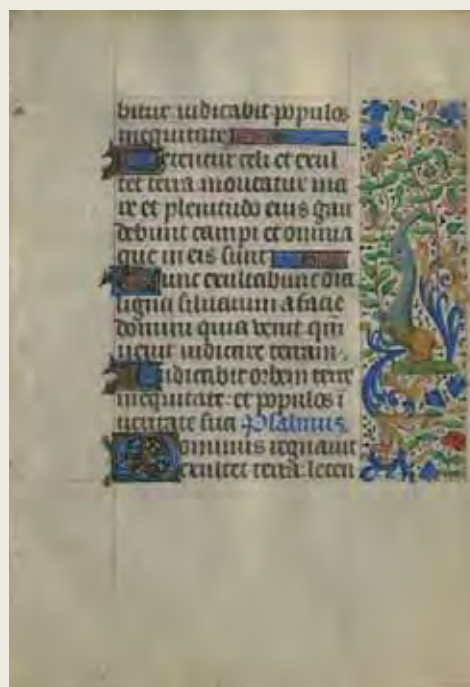 bitur iudicabit populos
inequitate
Letentur celi et exul
tet terra moueatur ma
re et plenitudo eius gau
debunt campi et omnia
que in eis sunt
Tunc exultabunt oīa
ligna siluarum a facie
domini quia venit qm̄
uenit iudicare terram.
Iudicabit orbem terre
inequitate: et populos ī
ueritate sua Psalmus.
Dominus regnauit
exultet terra leten